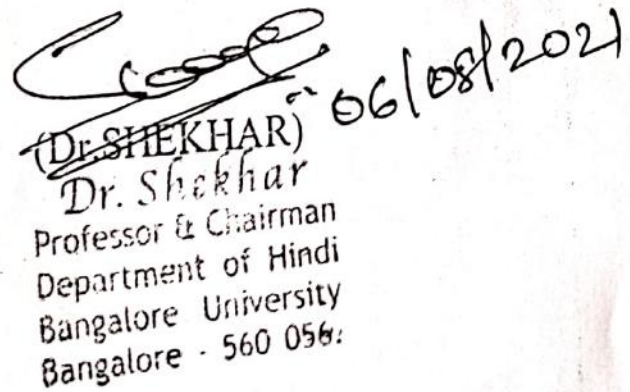 06/08/2021
(Dr.SHEKHAR)
Dr. Shekhar
Professor & Chairman
Department of Hindi
Bangalore University
Bangalore - 560 056.